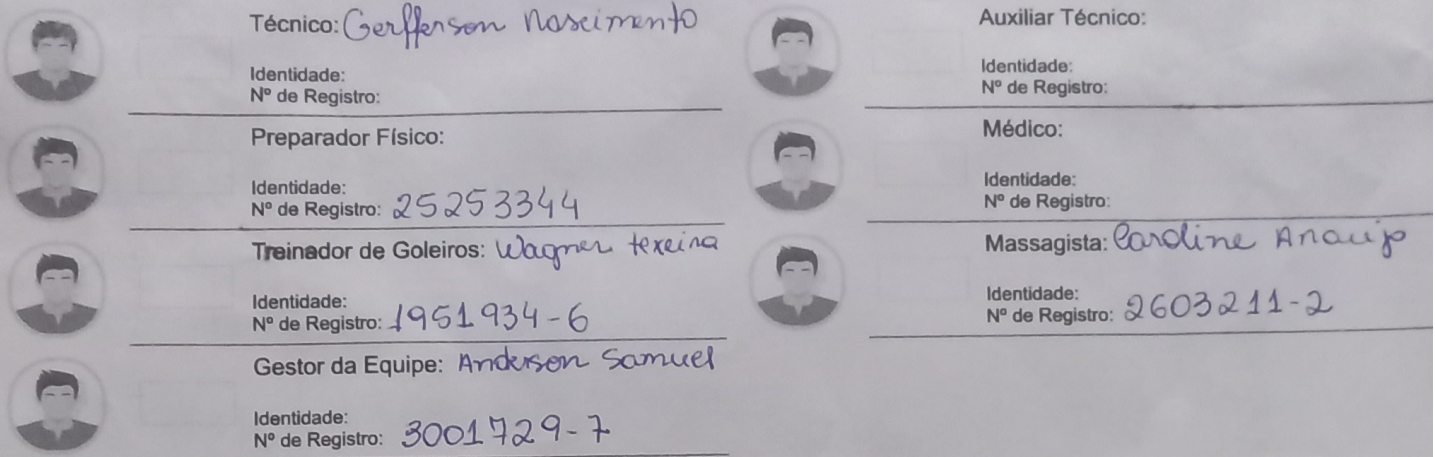 Técnico: Gerfferson Nascimento
Identidade:
Nº de Registro:
Preparador Físico:
Identidade:
Nº de Registro: 25253344
Treinador de Goleiros: Wagner texeira
Identidade:
Nº de Registro: 1951934-6
Gestor da Equipe: Anderson Samuel
Identidade:
Nº de Registro: 3001729-7
Auxiliar Técnico:
Identidade:
Nº de Registro:
Médico:
Identidade:
Nº de Registro:
Massagista: Caroline Araujo
Identidade:
Nº de Registro: 2603211-2